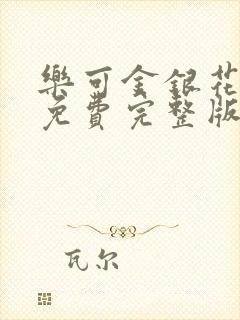 樂可金銀花
免費完整版
瓦尔